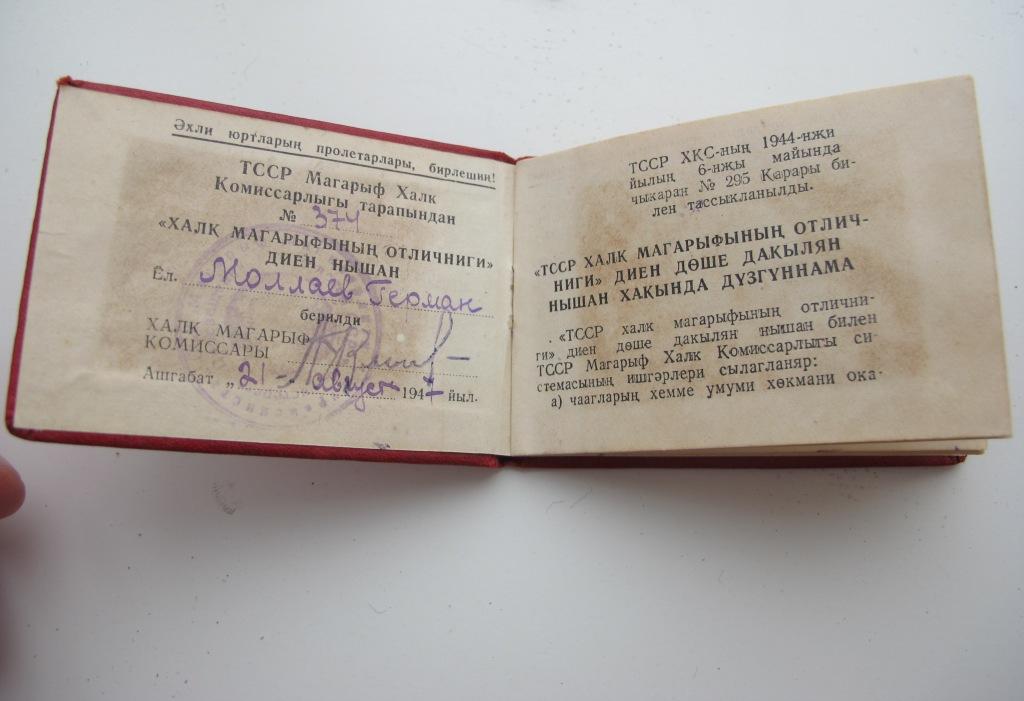 Әхли юртларың пролетарлары, бирлешиң!
ТССР Магарыф Халк
Комиссарлыгы тарапындан
№ 374
«ХАЛҚ МАГАРЫФЫНЫҢ ОТЛИЧНИГИ»
ДИЕН НЫШАН
Ёл. Моллаев Герман
берилди
ХАЛҚ МАГАРЫФ
КОМИССАРЫ
Ашгабат „21 - август 1947 йыл.
ТССР ХҚС-ның 1944-нҗи
йылың 6-нҗы майында
чыкаран № 295 Қарары би-
лен тассыкланылды.
«ТССР ХАЛҚ МАГАРЫФЫНЫҢ ОТЛИЧ-
НИГИ» ДИЕН ДӨШЕ ДАКЫЛЯН
НЫШАН ХАҚЫНДА ДҮЗГҮННАМА
„ТССР халк магарыфының отлични-
ги» диен дөше дакылян нышан билен
ТССР Магарыф Халк Қомиссарлыгы си-
стемасының ишгәрлери сылагланяр:
а) чаагларың хемме умуми хөкмани ока-